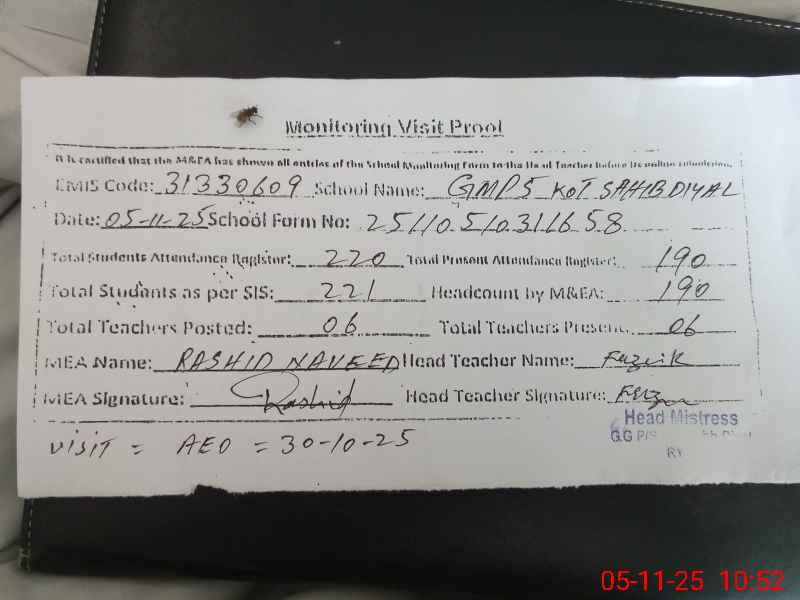 Monitoring Visit Proof
It is certified that the M&EA has shown all entries of the School Monitoring Form to the Head Teacher before its online submission.
EMIS Code: 31330609 School Name: GMPS KOT SAHIB DIYAL
Date: 05-11-25 School Form No: 25110510311658
Total Students Attendance Register: 220 Total Present Attendance Register: 190
Total Students as per SIS: 221 Headcount by M&EA: 190
Total Teachers Posted: 06 Total Teachers Present: 06
MEA Name: RASHID NAVEED Head Teacher Name:
MEA Signature: Rashid Head Teacher Signature:
Head Mistress
GG P/S
RY
VISIT = AEO = 30-10-25
05-11-25 10:52